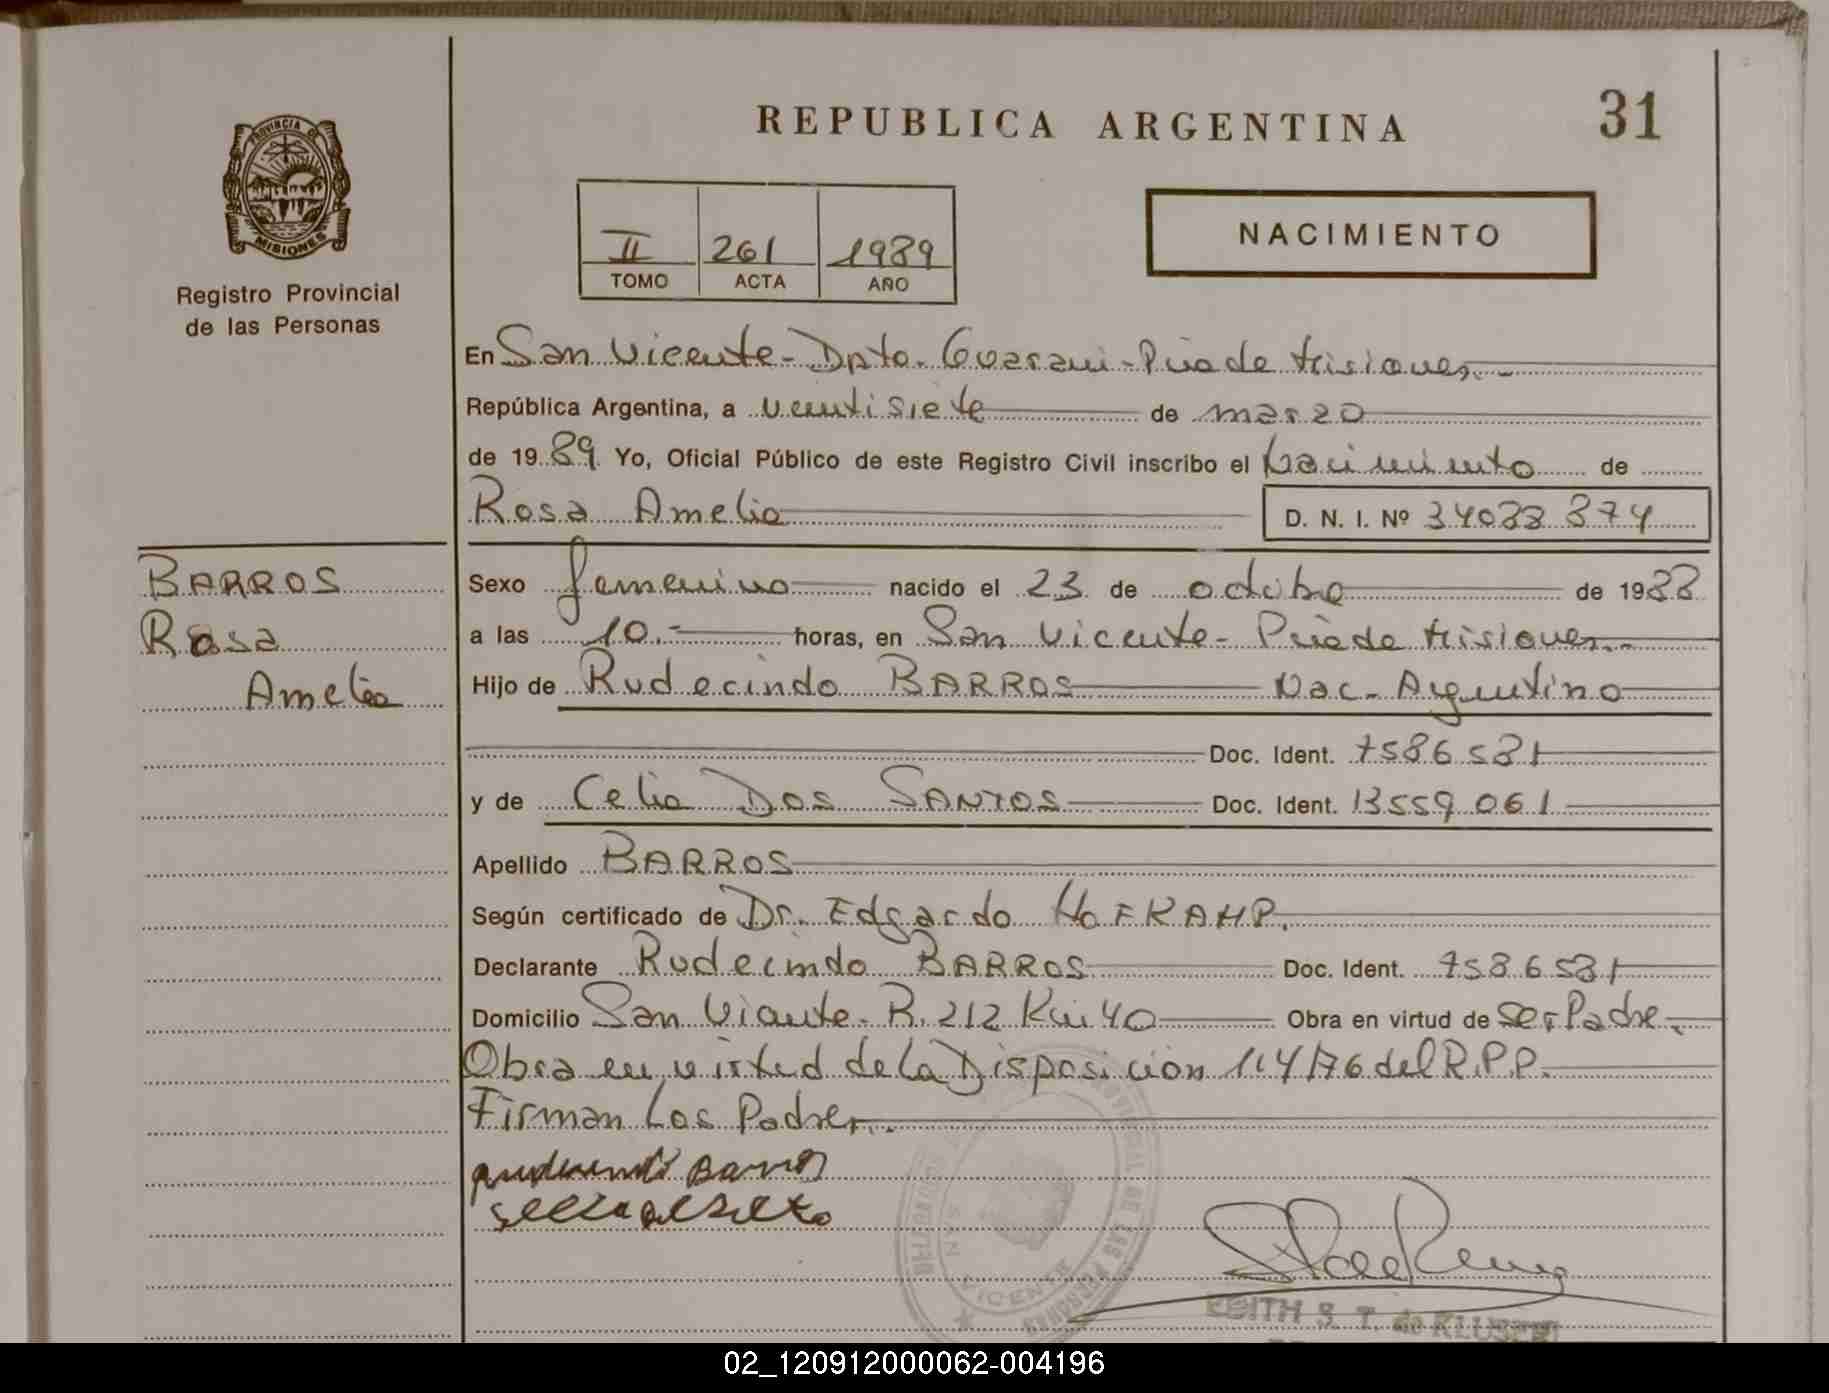 REPUBLICA ARGENTINA
31
PROVINCIA DE
MISIONES
Registro Provincial
de las Personas
II 261 1989
TOMO ACTA AÑO
NACIMIENTO
En San Vicente - Dpto. Guarani - Pcia de Misiones.-
República Argentina, a veintisiete de marzo
de 1989. Yo, Oficial Público de este Registro Civil inscribo el Nacimiento de
Rosa Amelia D. N. I. Nº 34038 374
BARROS
Rosa
Amelia
Sexo femenino nacido el 23 de octubre de 1988
a las 10.- horas, en San Vicente - Pcia de Misiones.-
Hijo de Rudecindo BARROS Nac. Argentino
Doc. Ident. 7586581
y de Celia Dos SANTOS Doc. Ident. 13559061
Apellido BARROS
Según certificado de Dr. Edgardo
Declarante Rudecindo BARROS Doc. Ident. 7586581
Domicilio San Vicente - R. 212 Km 40 Obra en virtud de Ser Padre.-
Obra en virtud de la Disposición 114/76 del R.P.P.
Firman Los Padres.-
Barros
SAN VICENTE
DE LAS PERSONAS
EDITH S. T. de
02_120912000062-004196